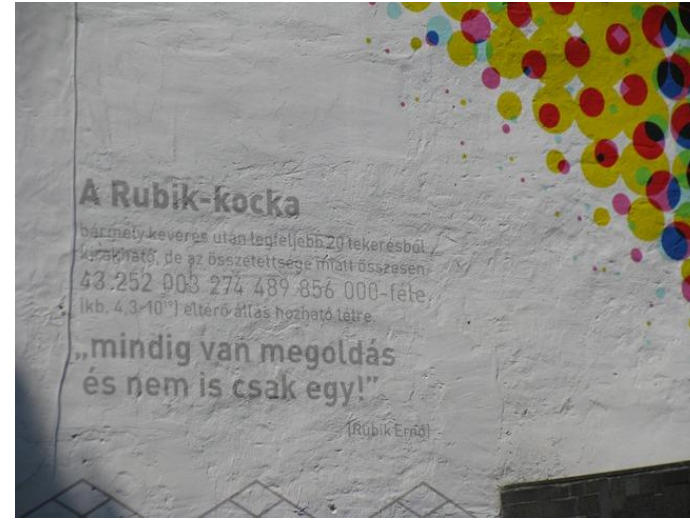 A Rubik-kocka
bármely keverés után legfeljebb 20 tekerésből
kirakható, de az összetettsége miatt összesen
43 252 003 274 489 856 000-féle,
(kb. 4,3·10¹⁹) eltérő állás hozható létre.
„mindig van megoldás
és nem is csak egy!”
(Rubik Ernő)